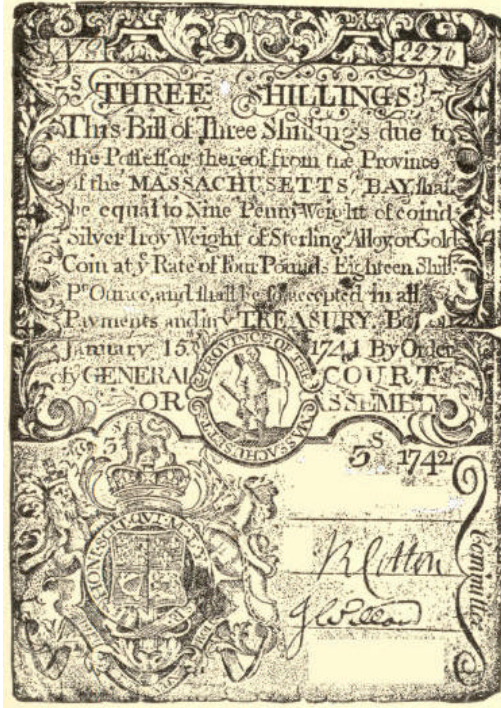 No 2270
3S THREE SHILLINGS 3S
This Bill of Three Shillings due to
the Possessor thereof from the Province
of the MASSACHUSETTS BAY, shall
be equal to Nine Penny Weight of coind
Silver Troy Weight of Sterling Alloy, or Gold
Coin at ye Rate of Four Pounds Eighteen Shill.
Pr Ounce, and shall be so accepted in all
Payments and in ye TREASURY. Boston
January 15 1741 By Order
of ye GENERAL COURT
OR ASSEMBLY
PROVINCE OF THE MASSACHUSETTS
3s 3S 1742
HONI SOIT QUI MAL Y
R Cotton
J Willard
Committee